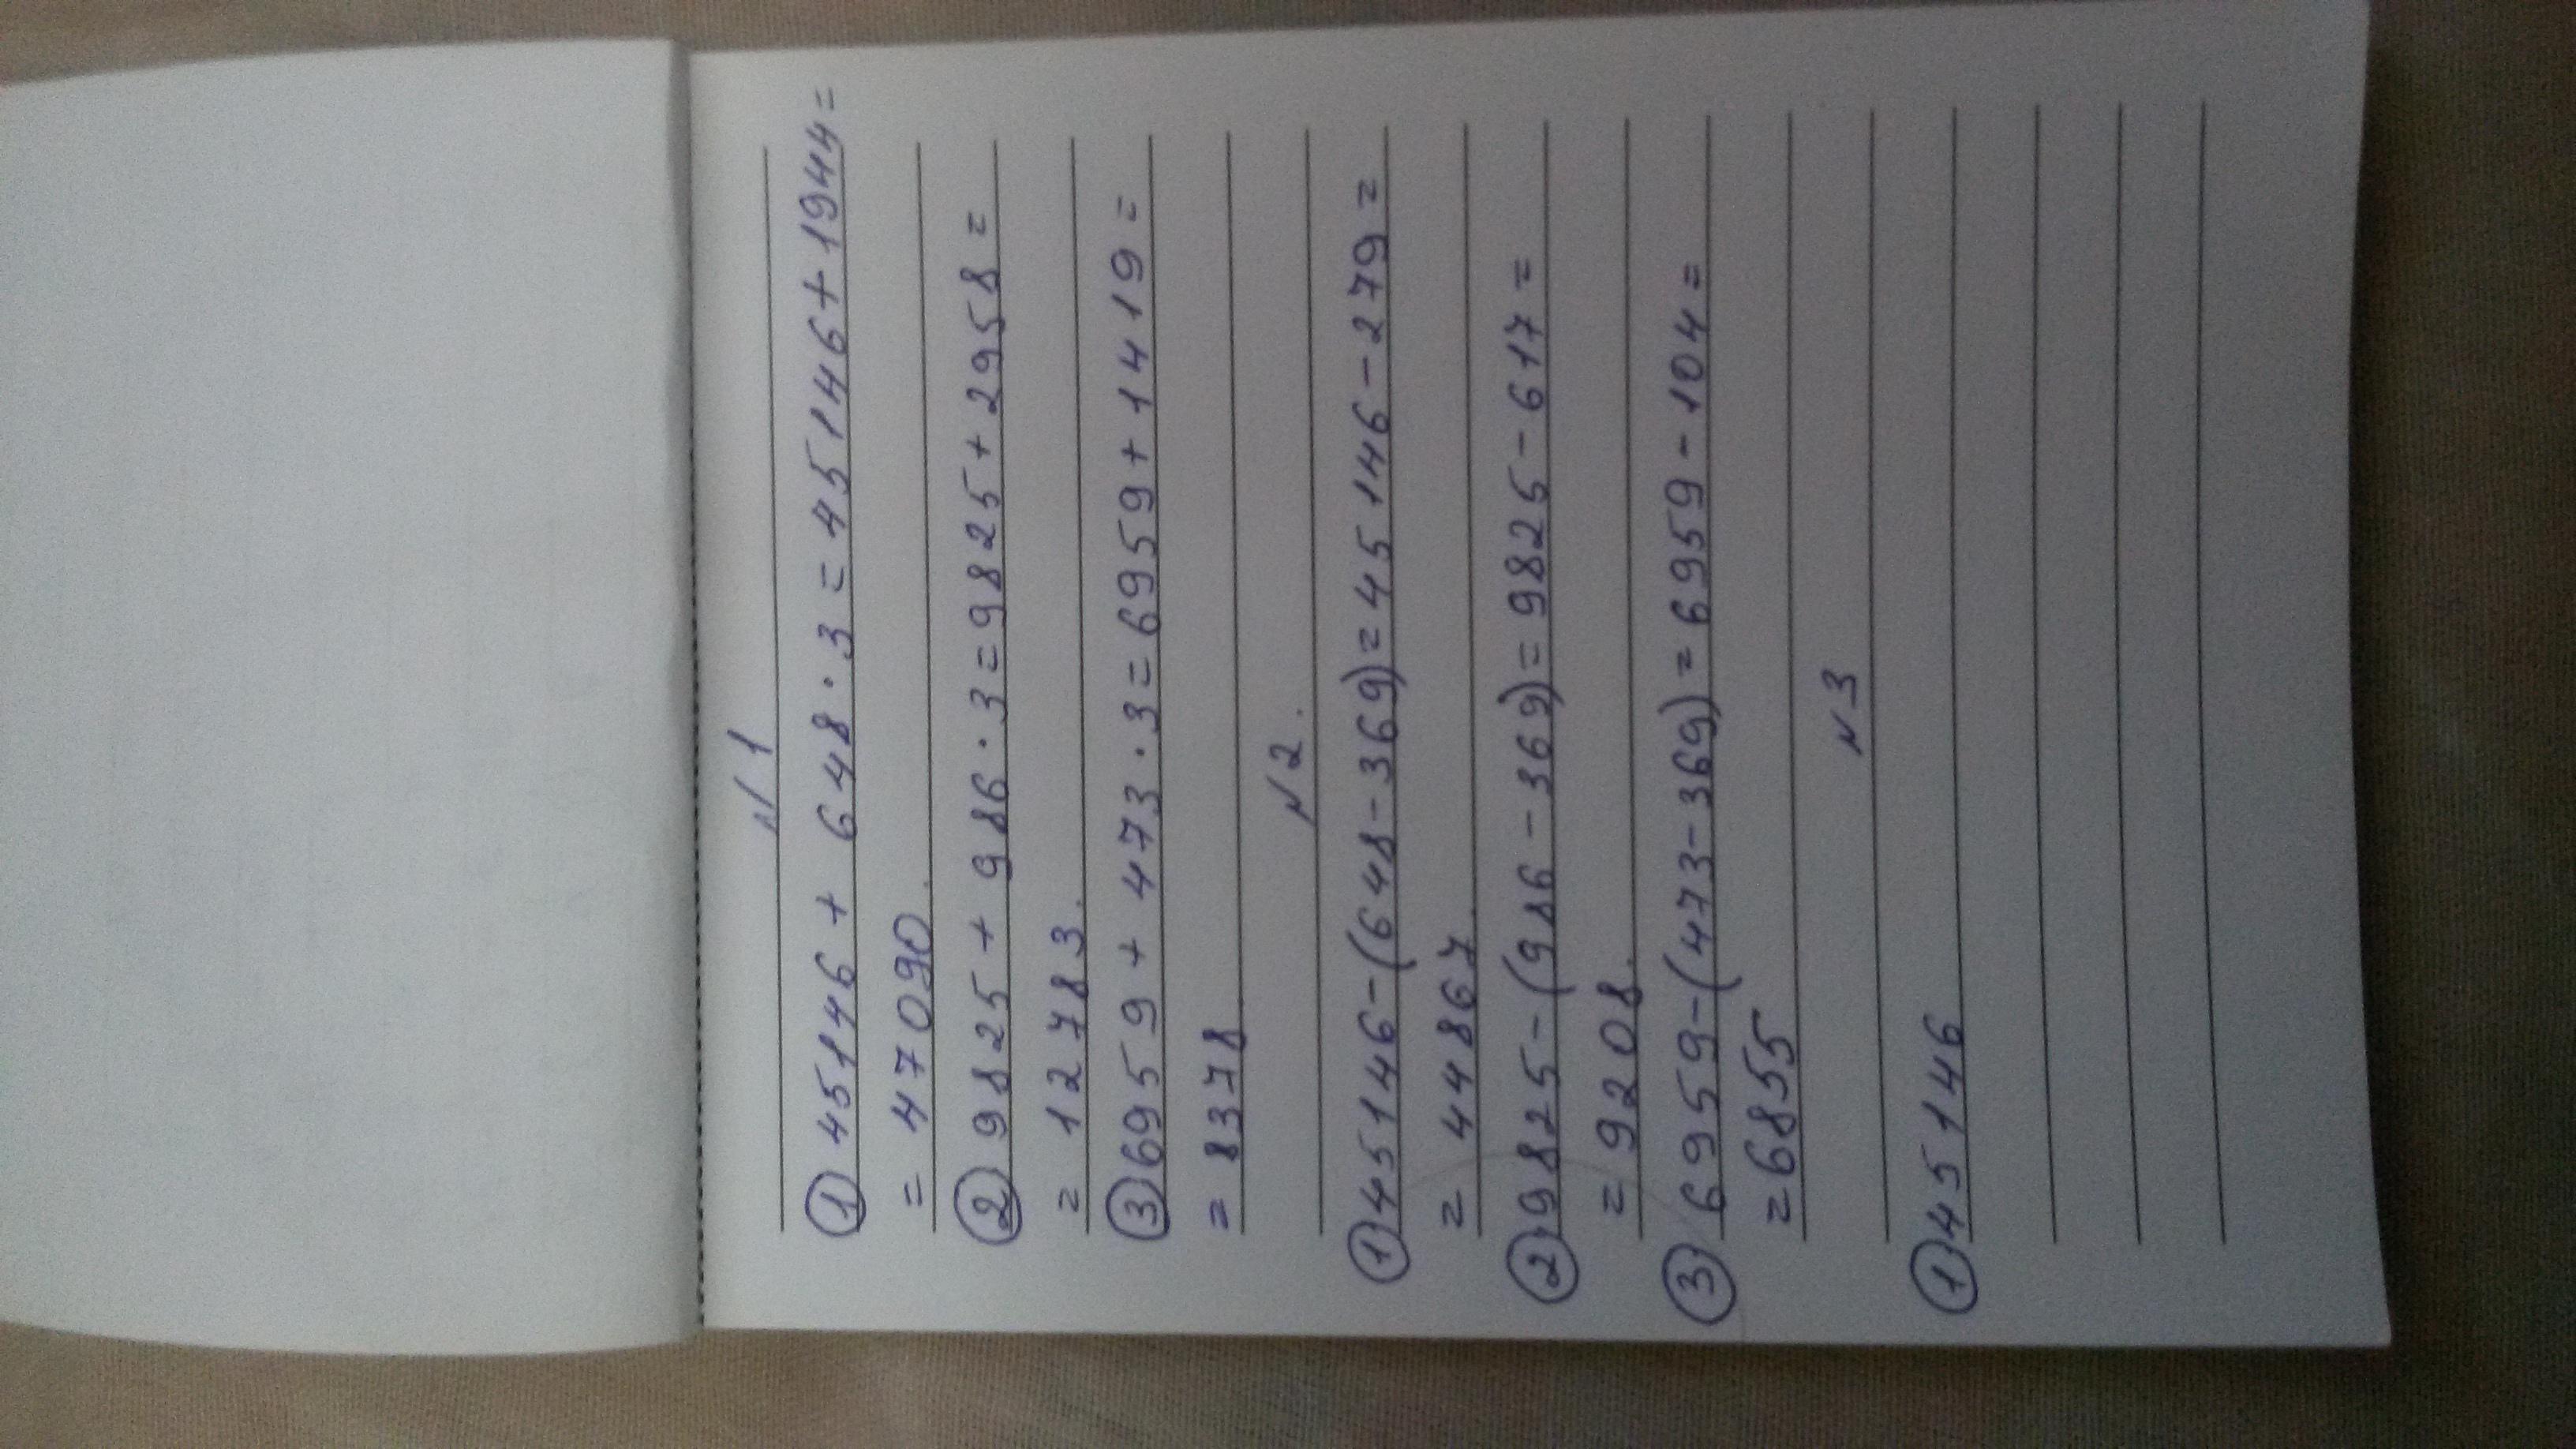 № 1
① 45146 + 648 · 3 = 45146 + 1944 =
= 47090.
② 9825 + 986 · 3 = 9825 + 2958 =
= 12783.
③ 6959 + 473 · 3 = 6959 + 1419 =
= 8378
№ 2.
① 45146 - (648 - 369) = 45146 - 279 =
= 44867.
② 9825 - (986 - 369) = 9825 - 617 =
= 9208.
③ 6959 - (473 - 369) = 6959 - 104 =
= 6855
№ 3
① 45146